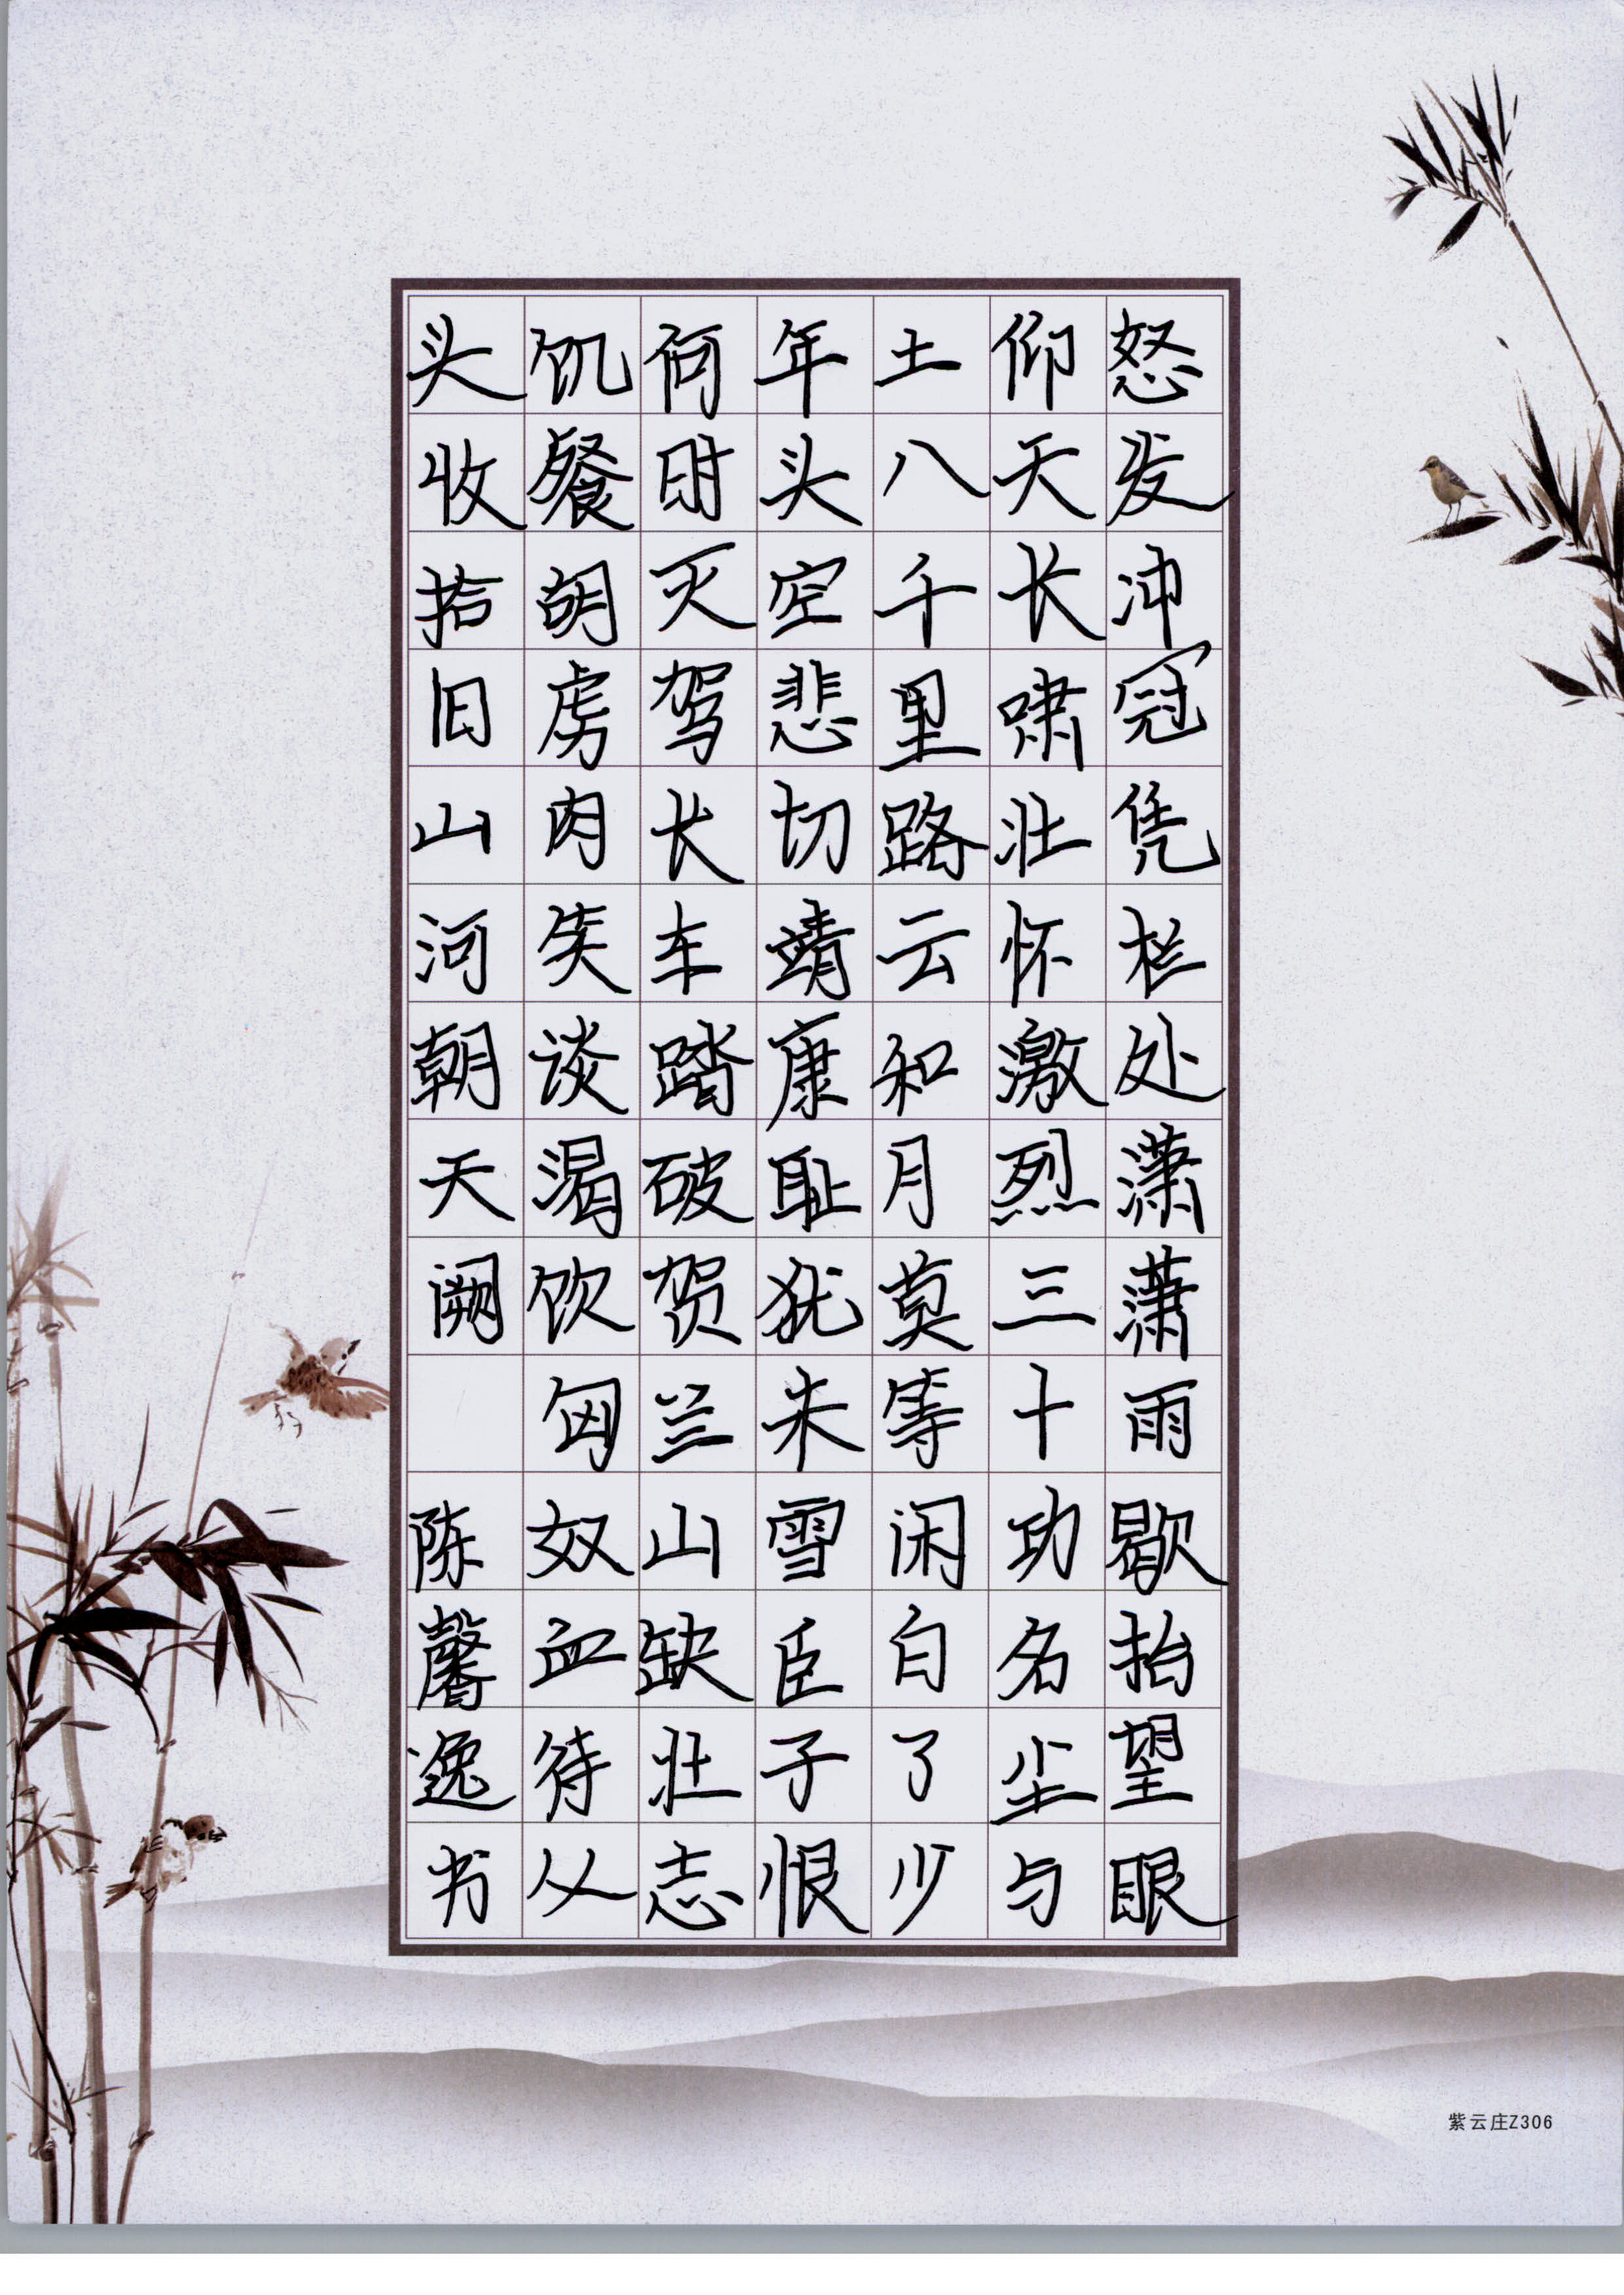 怒发冲冠凭栏处潇潇雨歇抬望眼
仰天长啸壮怀激烈三十功名尘与
土八千里路云和月莫等闲白了少
年头空悲切靖康耻犹未雪臣子恨
何时灭驾长车踏破贺兰山缺壮志
饥餐胡虏肉笑谈渴饮匈奴血待从
头收拾旧山河朝天阙 陈馨逸书
紫云庄Z306